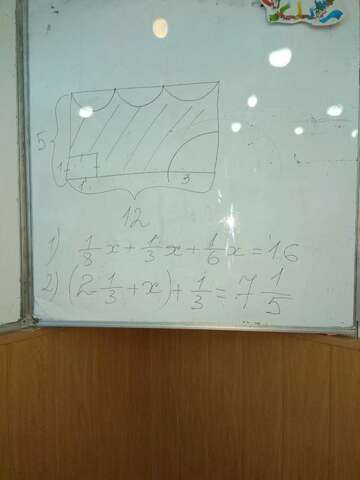 5
1
1
3
12
1) 1/8 x + 1/3 x + 1/6 x = 16
2) (2 1/3 + x) + 1/3 = 7 1/5